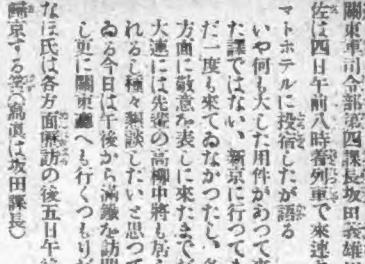 關東軍司令部第四課長坂田義雄
佐は四日午前八時着列車で來連
マトホテルに投宿したが語る
いや何も大した用件があつて來
た譯ではない、新京に行つても
だ一度も來てゐなかつたし、各
方面に敬意を表しに來たまでだ
大連には先輩の高柳中將も居ら
れるし種々懇談したいと思つて
ゐる今日は午後から滿鐵を訪問
し更に關東廳へも行くつもりだ
なほ氏は各方面歷訪の後五日午
歸京する筈（寫眞は坂田課長）